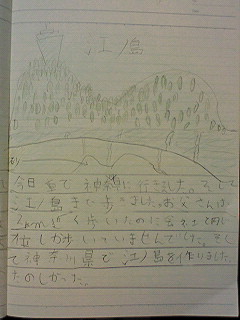 江ノ島
今日 神奈川に行きました。そして
江ノ島まで歩きました。お父さんは
く歩いたのに
しか歩いていませんでした。そし
て神奈川県で江ノ島を作りました。
たのしかった。